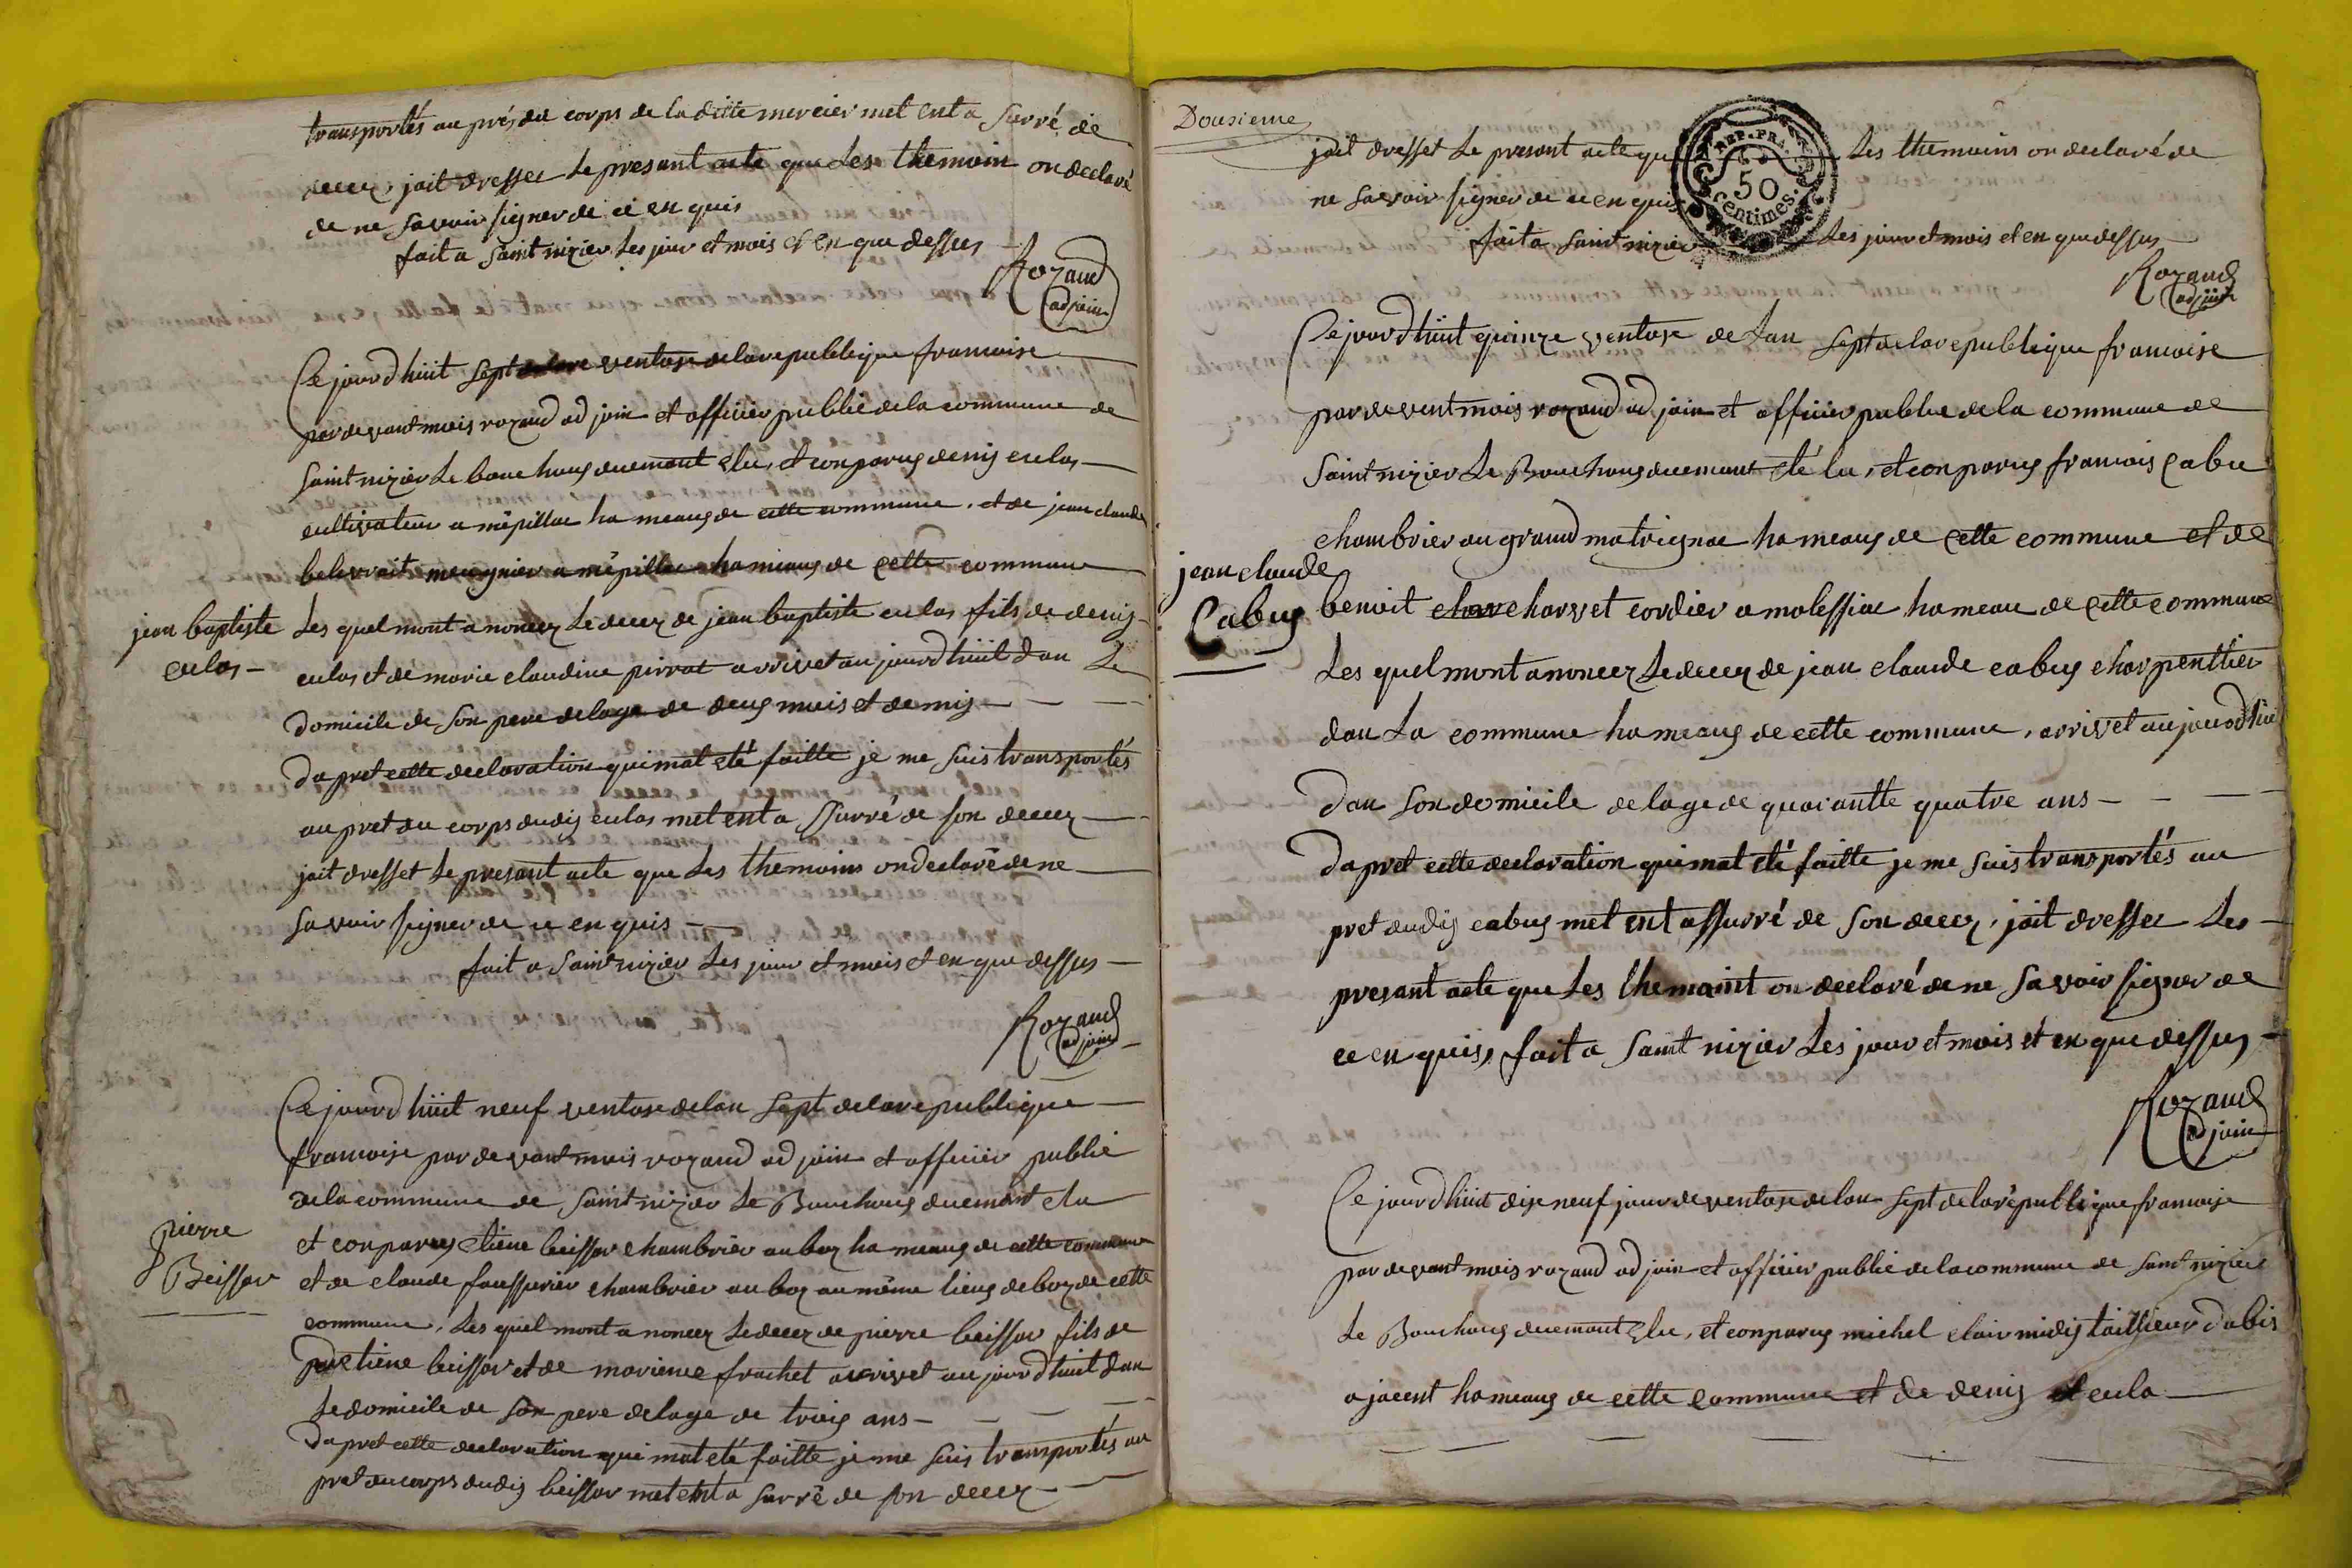 transportés au prés du corps de la ditte mercier met ent a surré de
decez, jait dresser le presant acte que les themoin on declaré
de ne savoir signer de ce en quis
fait a saint nizier les jour et mois et en que dessus
Rozand
adjoin
Ce jourdhüit sept ventose de la republique francoise
par devant mois rozand ad join et officier public de la commune de
saint nizier le bouchoug duement elu, et conparug denig culas
cultivateur a mépillac hameaug de cette commune, et de jean claude
belvrait meugnier a mépillac hamiaug de cette commune
jean baptiste
culas
les quel mont a noncez le decez de jean baptiste culas fils de denig
culas et de marie claudine pirrat arrivet au jourdhüit dan le
domicile de son pere de lage de deug mois et demis
dapret cette declaration qui mat eté faitte je me suis transportés
au pret du corps dudig culas met ent a ssurré de son decez
jait dresset le presant acte que les themoins on declaré de ne
savoir signer de ce en quis
fait a saint nizier les jour et mois et en que dessus
Rozand
adjoin
Ce jourdhüit neuf ventose de lan sept de la republique
francoise par devant mois rozand ad join et officier public
de la commune de saint nizier le Bouchoug duemant elu
pierre
Beissar
et conparug etiene beissar chambrier au boz hameaug de cette commune
et de claude faussurier chambrier au boz au même lieug de boz de cette
commune, les quel mont a noncez le decez de pierre beissar fils de
etiene beissar et de mariene frachet arrivet au jourdhuit dan
le domicile de son pere de lage de trois ans
dapret cette declaration qui mat eté faitte je me suis transportés au
pret du corps dudig beissar met ent a surré de son decez
Dousieme
jait dresset le presant acte que les themoins on declaré de
REP. FRA.
50
Centimes.
ne savoir signer de ce en quis
fait a saint nizier les jour et mois et en que dessus
Rozand
adjoin
Ce jourdhüit quinze ventose de lan sept de la republique francoise
par devent mois rozand ad join et officier public de la commune de
saint nizier le Bouchoug duemant eté lu, et conparug francois Cabu
chambrier au grand matrignac hameaug de cette commune et de
jean claude
Cabug
benoit charvet cordier a malessiac hameau de cette commune
les quel mont a noncez le decez de jean claude cabug charpenttier
dan la commune hameaug de cette commune, arrivet au jourdhüi
dan son domicile de lage de quarantte quatre ans
dapret cette declaration qui mat eté faitte je me suis transportés au
pret dudig cabug met ent assurré de son decez, jait dresser les
presant acte que les themaint on declaré de ne savoir signer de
ce en quis, fait a saint nizier les jour et mois et en que dessus
Rozand
adjoin
Ce jourdhüit dix neuf jour de ventose de lan sept de la republique francoise
par devant mois rozand ad join et officier public de la commune de saint nizier
le Bouchoug duemant elu, et conparug michel clair midig taillieur dabis
a jacent hameaug de cette commune et de denig cula